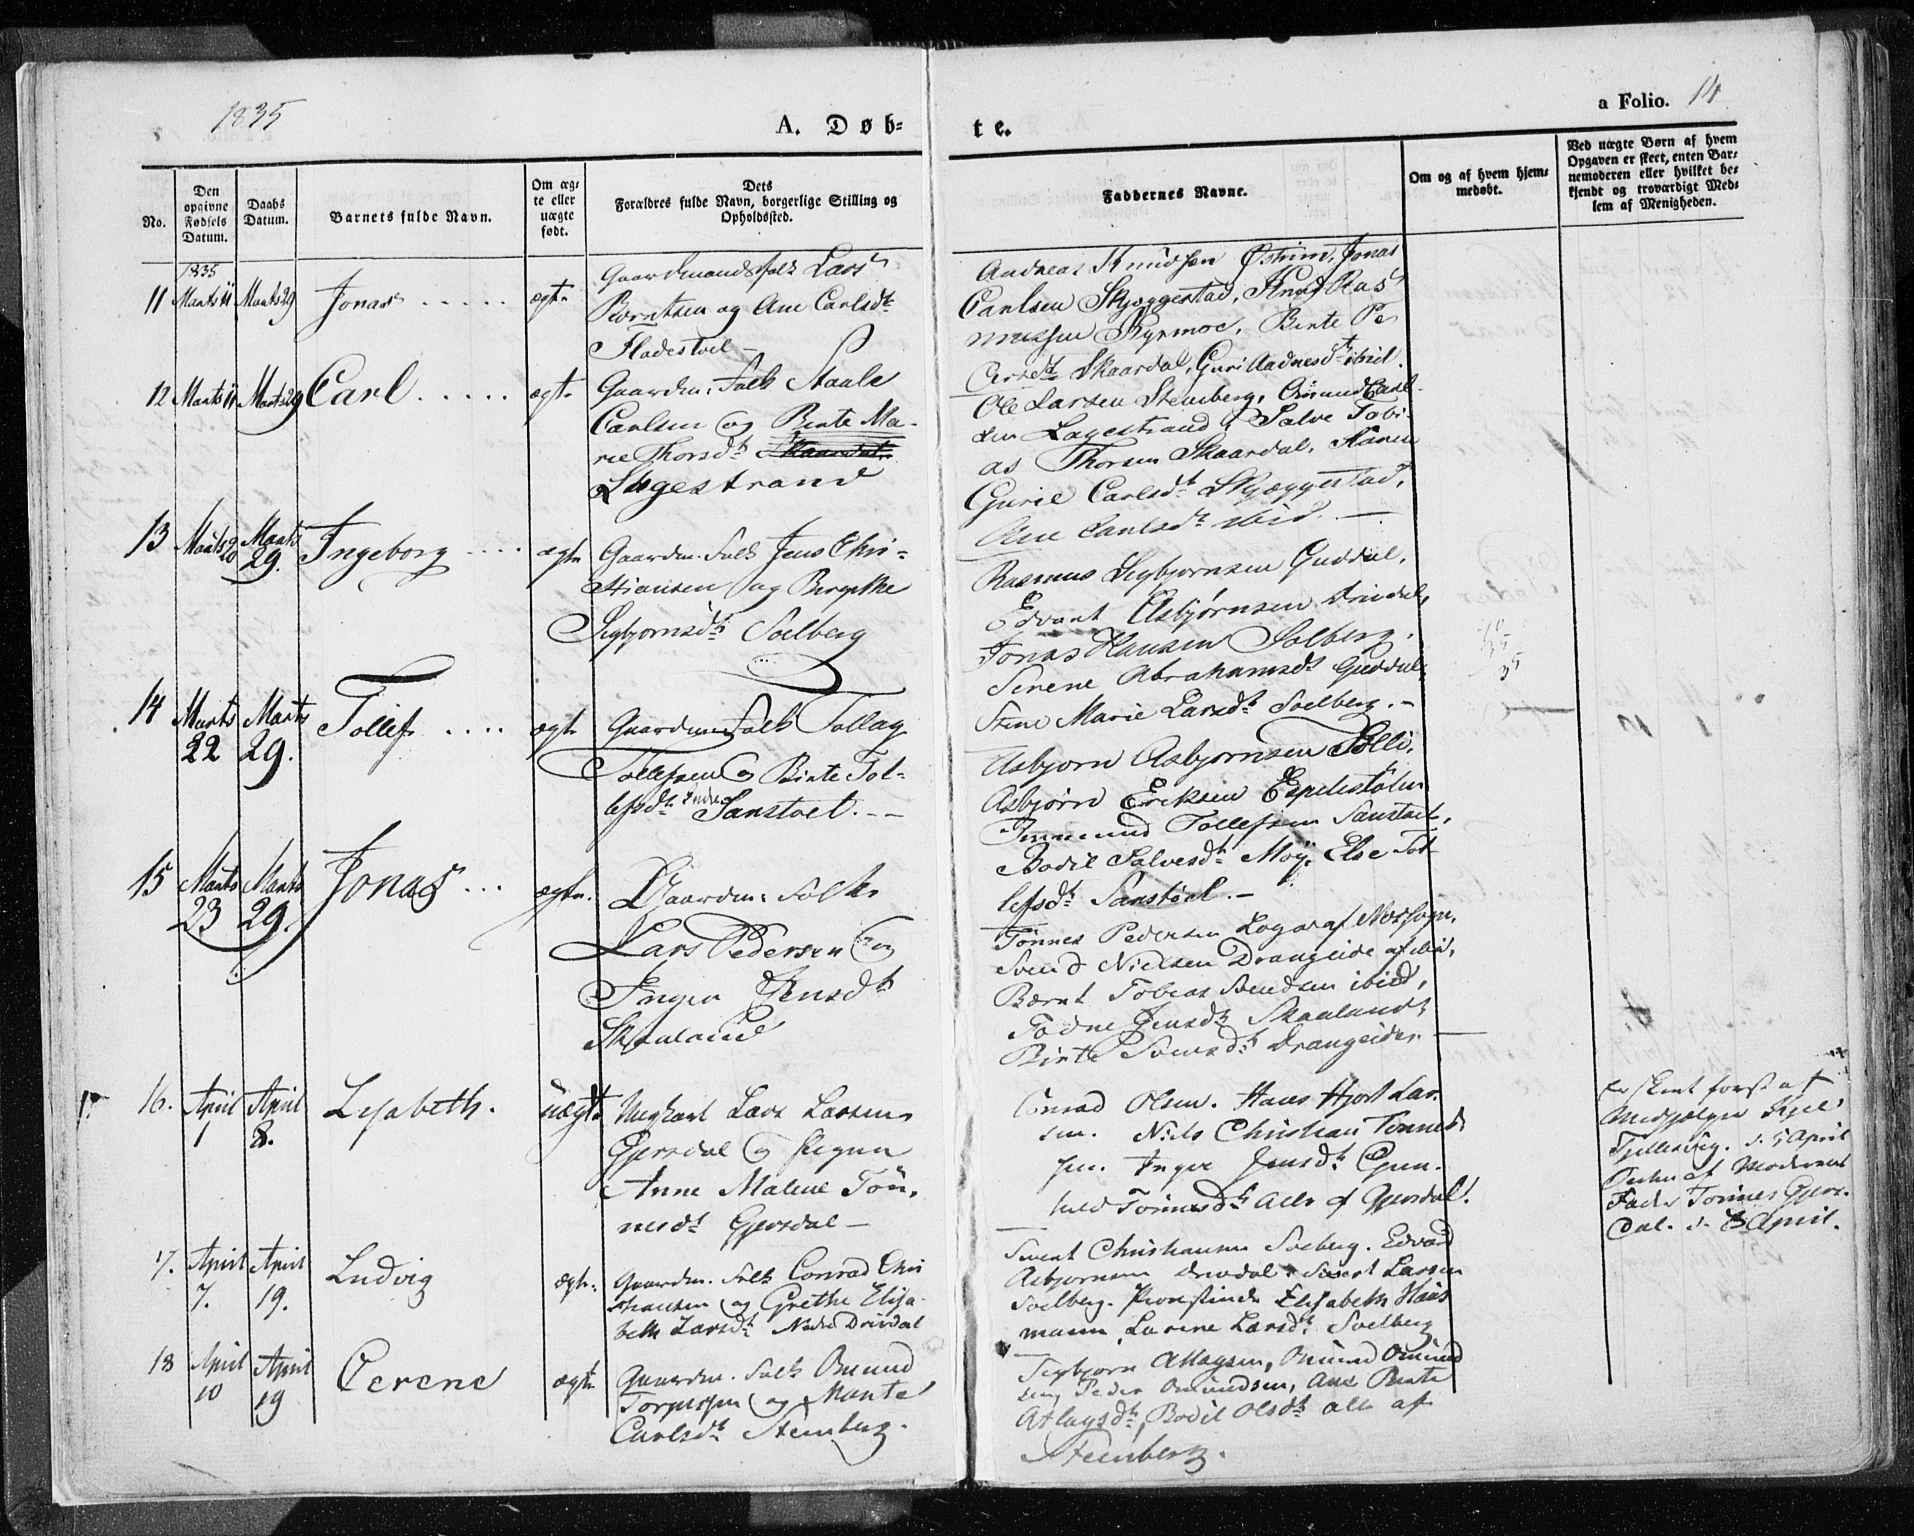 1835
A. Døb-
te.
a Folio. 14
No.
Den opgivne Fødsels Datum.
Daabs Datum.
Barnets fulde Navn.
Om ægte eller uægte født.
Dets Forældres fulde Navn, borgerlige Stilling og Opholdssted.
Faddernes Navne.
Om og af hvem hjemmedøbt.
Ved uægte Børn af hvem Opgaven er skeet, enten Barnemoderen eller hvilket bekjendt og troværdigt Medlem af Menigheden.
1835
11 Marts 11 Marts 29 Jonas ægte
Gaardmandsfolk Lars
Berntsen og Ane Carlsdt
Fladestoel
Andreas Knudsen Østrim, Jonas
Carlsen Skjeggestad, Knud Ras
mussen Kyrmoe, Birte Pe
dersdt Skaardal, Guri Aadnesdt ibid.
12 Marts 11 Marts 29 Carl ægte
Gaardm. Folk Staale
Carlsen og Birte Ma-
rie Thorsdt Skaardal
Lagestrand
Ole Larsen Stenberg, Omund Carl
sen Lagestrand, Salve Tobi
as Thorsen Skaardal, Karen
Gurie Carlsdt Skjæggestad,
Ane Carlsdt ibid.
13 Marts 20 Marts 29. Ingeborg ægte
Gaardm. Folk Jens Chri-
stiansen og Birgithe
Sigbjørnsdt Soelberg
Rasmus Sigbjornsen Guddal,
Edvart Asbjørnsen Drivdal,
Jonas Hansen Solberg,
Serene Abrahamsdt Guddal,
Stine Marie Larsdt Soelberg.
14 Marts 22 Marts 29. Tollef ægte
Gaardm. Folk Tollag
Tollefsen og Birte Tol-
lefsdt Indre Sanstoel.
Asbjorn Asbjornsen Tolli,
Asbjørn Eriksen Espelistølen
Tollefsen Sanstoel,
Bodil Salvesdt Moÿ, Else Tol
lefsdt Sanstøel.
15 Marts 23 Marts 29. Jonas ægte.
Gaardm: Folk
Lars Pedersen og
Inger Jensdt
Skaaland
Tønnes Pedersen Loga af Næs Sogn,
Svend Nielsen Drangeide af ibid,
Bærnt Tobias Svendsen ibid,
Todne Jensdt Skaaland,
Birte Svensdt Drangeider.
16. April 1 April 8. Lisabeth. uægte
Ungkarl Lars Larsen
Gjersdal og Pigen
Anne Malene Tön-
nesdt Gjersdal
Conrad Olsen. Hans Hjort Lar
sen. Niels Christian Tønnes
sen. Inger Jensdt Gun-
hild Tonnesdt Alle af Gjersdal.
Er skeet først af
Medhjelper Kjel
Fjellestig. d. 5 April
Siden af Moderens
Fader Tønnes Gjers-
dal. d. 8 April.
17. April 7. April 19. Ludvig ægte.
Gaardm. Folk Conrad Chri
stiansen og Grethe Elisa-
beth Larsdt Nedre Drivdal
Sivert Christiansen Soeberg. Edvard
Asbjornsen Drivdal. Sivert Larsen
Soelberg. Provstinde Elisabeth Haus
mann, Larene Larsdt Soelberg
18 April 10 April 19 Cerene ægte
Gaardm. Folk Omund
Torgersen og Marte
Carlsdt Stenberg.
Sigbjorn Atlagsen, Omund Omund
sen, Peder Omundsen, Ane Birte
Atlagsdt, Bodil Olsdt alle af
Steenberg.